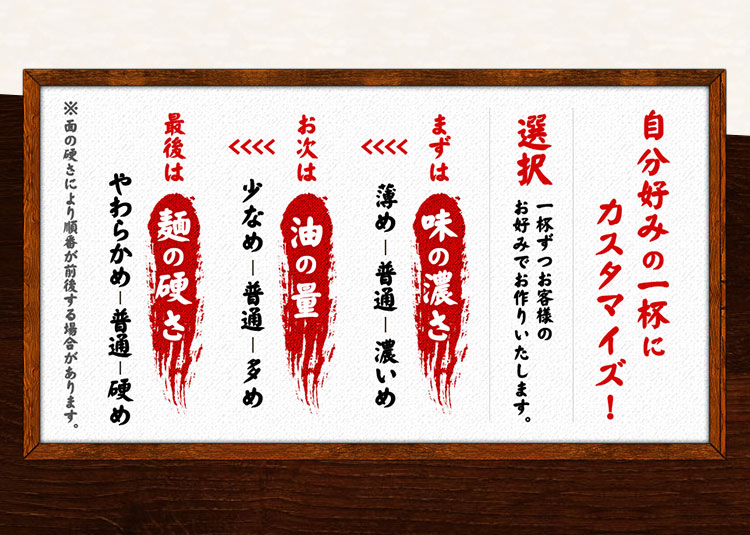 自分好みの一杯に
カスタマイズ！
選択
一杯ずつお客様の
お好みでお作りいたします。
まずは
味の濃さ
薄め―普通―濃いめ
<<<<
お次は
油の量
少なめ―普通―多め
<<<<
最後は
麺の硬さ
やわらかめ―普通―硬め
※面の硬さにより順番が前後する場合があります。